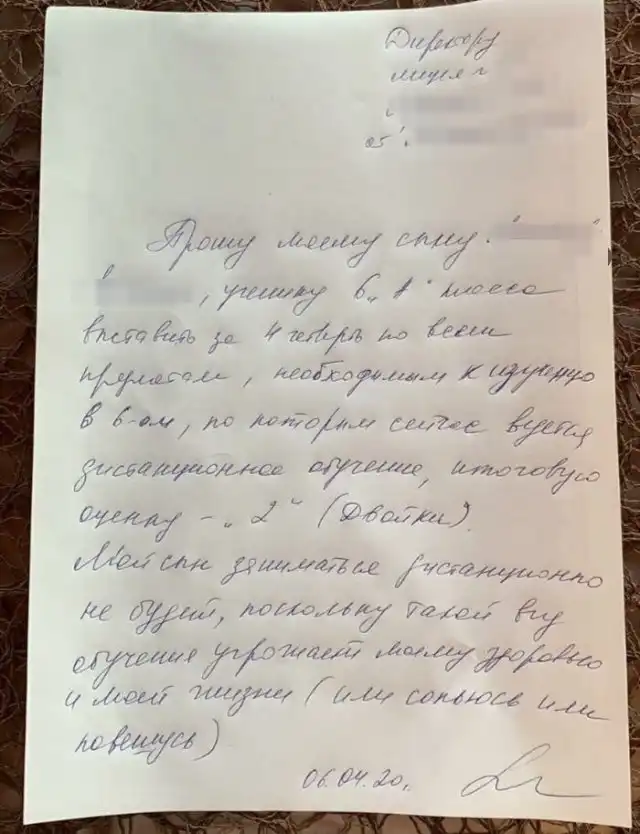 Директору
лицея
от
Прошу моему сыну
, ученику 6 „А" класса
выставить за 4 четверть по всем
предметам, необходимым к изучению
в 6-ом, по которым сейчас ведется
дистанционное обучение, итоговую
оценку - „2" (Двойки).
Мой сын заниматься дистанционно
не будет, поскольку такой вид
обучения угрожает моему здоровью
и моей жизни (или сопьюсь или
повешусь)
06.04.20г.